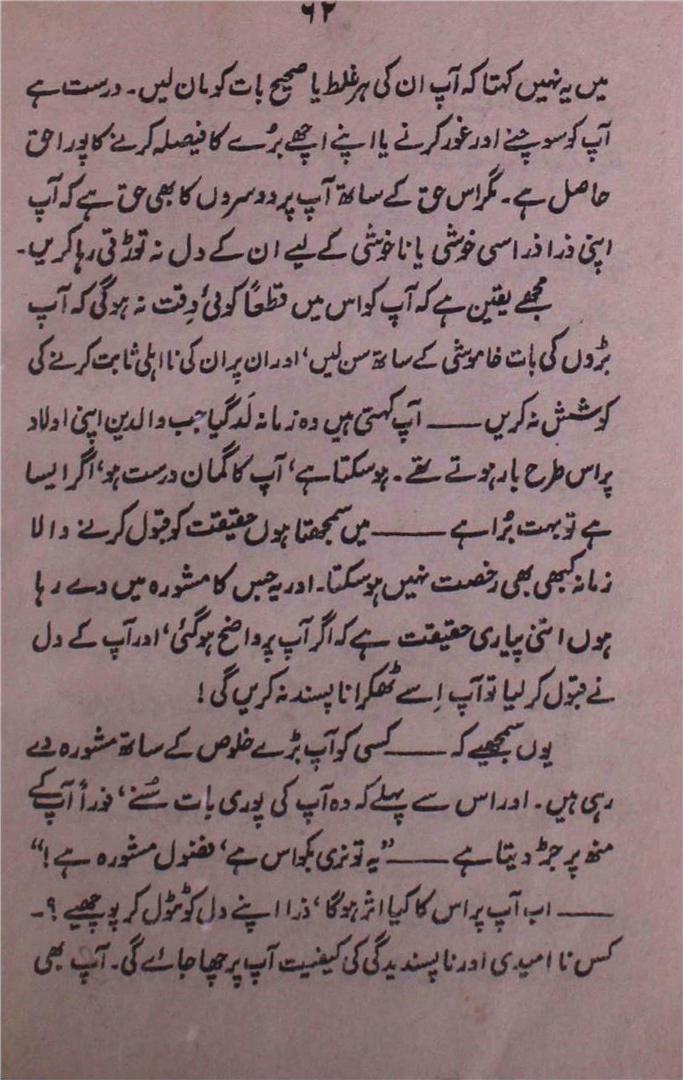 ۶۲
میں یہ نہیں کہتا کہ آپ ان کی ہر غلط یا صحیح بات کو مان لیں۔ درست ہے
آپ کو سوچنے اور غور کرنے یا اپنے اچھے بُرے کا فیصلہ کرنے کا پورا حق
حاصل ہے۔ مگر اس حق کے ساتھ آپ پر دوسروں کا بھی حق ہے کہ آپ
اپنی ذرا ذرا سی خوشی یا ناخوشی کے لیے ان کے دل نہ توڑتی رہا کریں۔
مجھے یقین ہے کہ آپ کو اس میں قطعاً کوئی دِقت نہ ہوگی کہ آپ
بڑوں کی بات خاموشی کے ساتھ سن لیں، اور ان پر ان کی نااہلی ثابت کرنے کی
کوشش نہ کریں —— آپ کہتی ہیں وہ زمانہ لَد گیا جب والدین اپنی اولاد
پر اس طرح بار ہوتے تھے۔ ہوسکتا ہے، آپ کا گمان درست ہو، اگر ایسا
ہے تو بہت بُرا ہے —— میں سمجھتا ہوں حقیقت کو قبول کرنے والا
زمانہ کبھی بھی رخصت نہیں ہوسکتا۔ اور یہ جس کا مشورہ میں دے رہا
ہوں اتنی پیاری حقیقت ہے کہ اگر آپ پر واضح ہوگئی، اور آپ کے دل
نے قبول کر لیا تو آپ اِسے ٹھکرانا پسند نہ کریں گی!
یوں سمجھیے کہ —— کسی کو آپ بڑے خلوص کے ساتھ مشورہ دے
رہی ہیں۔ اور اس سے پہلے کہ وہ آپ کی پوری بات سُنے، فوراً آپ کے
منھ پر جڑ دیتا ہے —— ”یہ تو نری بکواس ہے، فضول مشورہ ہے!“
—— اب آپ پر اس کا کیا اثر ہوگا، ذرا اپنے دل کو ٹٹول کر پوچھیے؟۔
کس ناامیدی اور ناپسندیدگی کی کیفیت آپ پر چھا جائے گی۔ آپ بھی